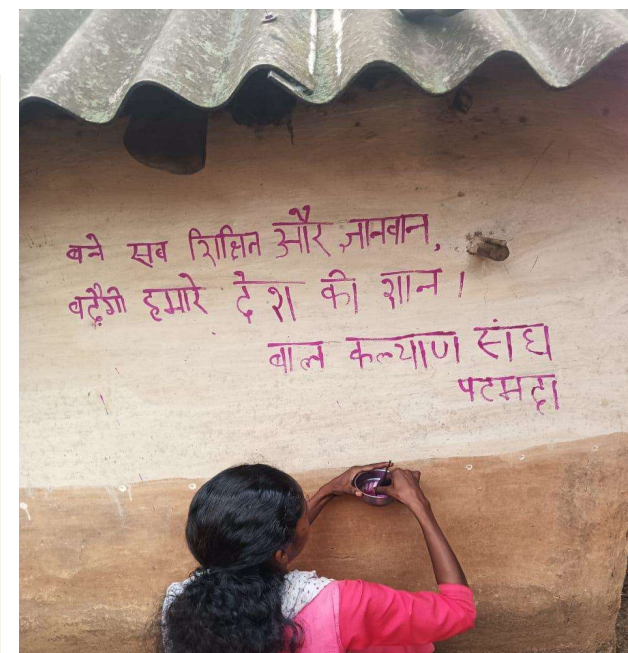 बने सब शिक्षित और ज्ञानवान,
बढ़ेगी हमारे देश की शान।
बाल कल्याण संघ
पटमदा